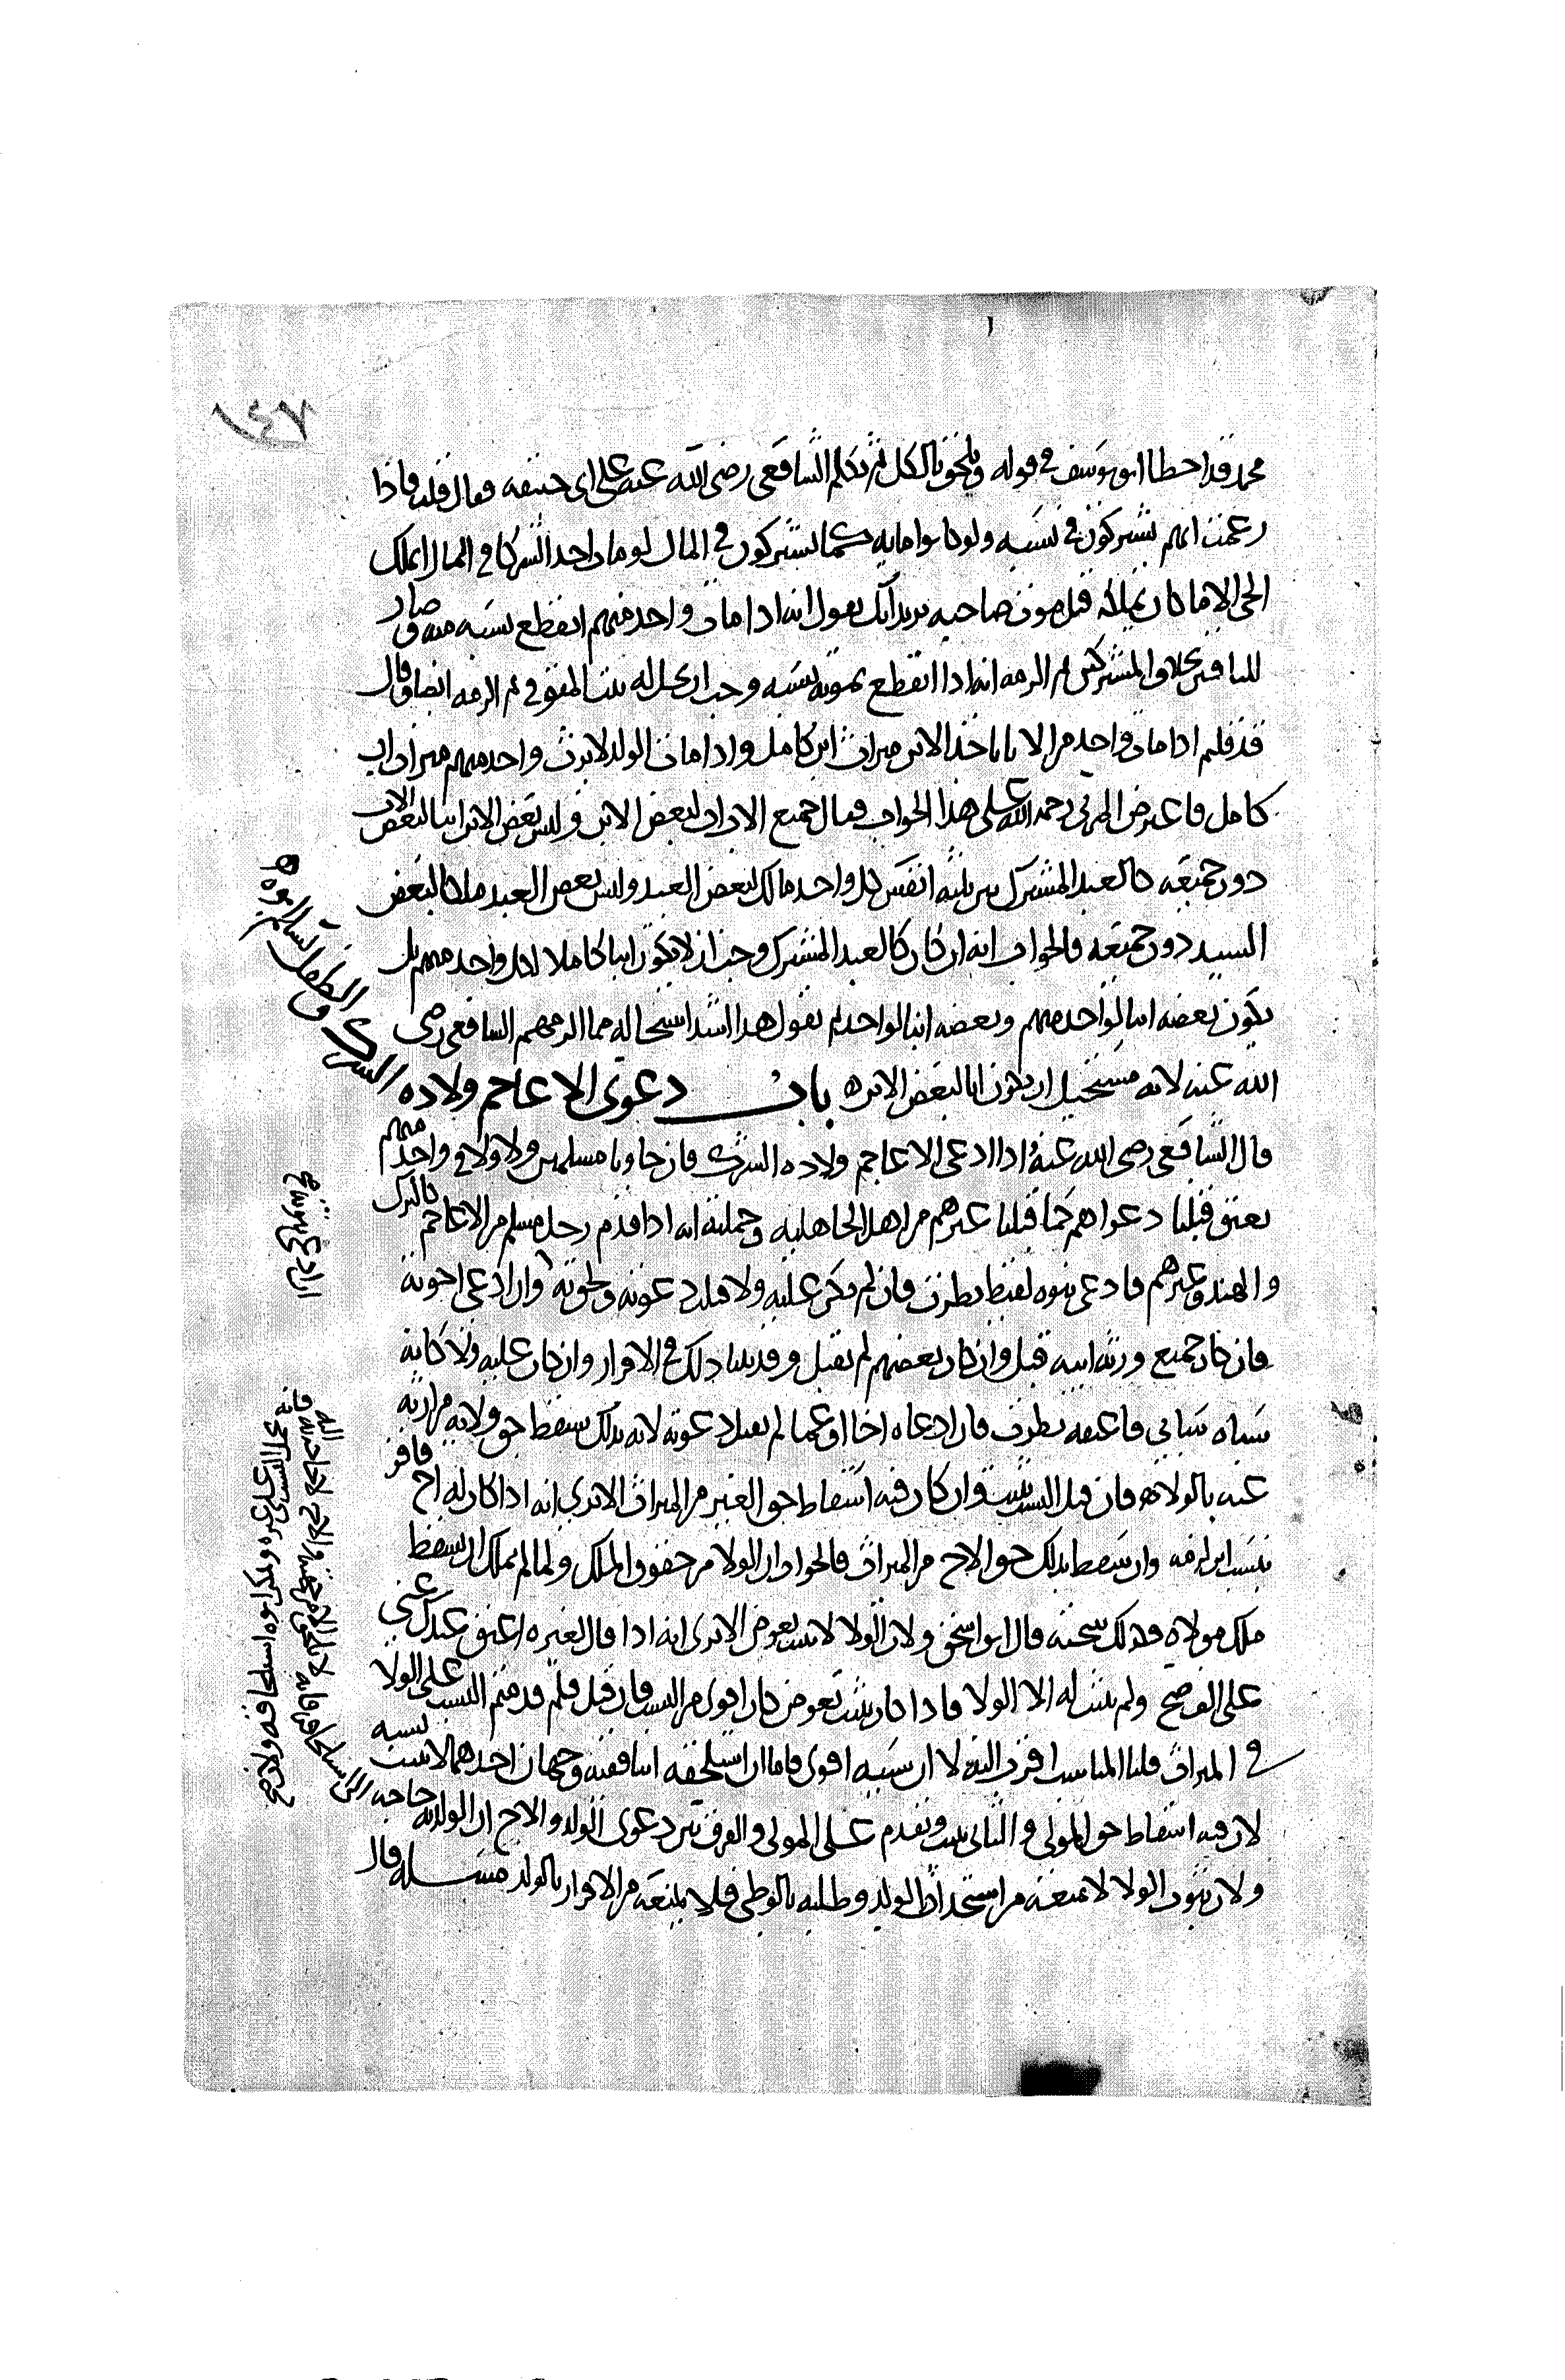 محمد قد اخطا ابو يوسف في قوله ويلحق بالكل ثم تكلم الشافعي رضي الله عنه على ابي حنيفه فقال قلت فاذا
زعمت انهم يشتركون في نسبه ولو كانوا مايه كما يشتركون في المال لو مات احد الشركا في المال ايملك
الحي الا ما كان يملكه قبل موت صاحبه يريد انك تقول انه اذا مات واحد منهم انقطع نسبه منه وصار
للباقين بخلاف المشتركين ثم الزمه انه اذا انقطع بموته نسبه وجب ان يحل له بنت المتوفى ثم الزمه ايضا وقال
قد قلتم اذا مات واحد من الابا ياخذ الابن ميراث ابن كامل واذا مات الولد لا يرث واحد منهم ميراث اب
كامل فاعترض المزني رحمه الله على هذا الجواب فقال جميع الاب اب لبعض الابن وليس بعض الابن ابنا لبعض الاب
دون جميعه كالعبد المشترك بين ثلثه انفس كل واحد مالك لبعض العبد وليس بعض العبد ملكا لبعض
السيد دون جميعه فالجواب انه ان كان كالعبد المشترك وجب ان لا يكون ابنا كاملا لكل واحد منهم بل
يكون بعضه ابنا لواحد منهم وبعضه ابنا لواحد ثم نقول هذا اشد استحاله مما الزمهم الشافعي رضي
الله عنه لانه مستحيل ان يكون ابا لبعض الابن ه باب دعوى الاعاجم ولاده الشرك والطفل يسلم ابوه ه
قال الشافعي رضي الله عنه اذا ادعى الاعاجم ولاده الشرك فان جاونا مسلمين ولا ولا في واحد منهم
بعتق قبلنا دعواهم كما قبلنا غيرهم من اهل الجاهليه وجملته انه اذا قدم رجل مسلم من الاعاجم كالترك
والهند وغيرهم فادعى بنوه لقيط نظرت فان لم يكن عليه ولا قبلت دعوته ولحق به وان ادعى اخوته
فان كان جميع ورثه ابيه قبل وان كان بعضهم لم تقبل وقد بينا ذلك في الاقرار وان كان عليه ولا كانه
سباه سابي فاعتقه نظرت فان ادعاه اخا او عما لم تقبل دعوته لانه بذلك يسقط حق ولايه من ارثه
عنه بالولا ه فان قيل النسب يثبت وان كان فيه اسقاط حق الغير من الميراث الا ترى انه اذا كان له اخ فاقر
بنسب ابن لزمه وان سقط بذلك حق الاخ من الميراث فالجواب ان الولا من حقوق الملك ولما لم يملك ان يسقط
ملك مولاه فكذلك حقه قال ابو اسحق ولان الولا لا يثبت بعوض الا ترى انه اذا قال لغيره اعتق عبدك عني
على الف صح ولم يثبت له الا الولا فاذا كان يثبت بعوض كان اقوى من النسب فان قيل فلم قدمتم النسب على الولا
في الميراث قلنا المناسب اقرب اليه لا ان نسبه اقوى فاما ان استلحقه ابنا ففيه وجهان احدهما لا يثبت نسبه
لان فيه اسقاط حق المولى والثاني يثبت ويقدم على المولى والفرق بين دعوى الولد والاخ ان الولد به حاجه الى استلحاقه
ولان ثبوت الولا لا يمنعه من استحداث الولد وطلبه بالوطي فلا يمنعه من الاقرار بالولد مسله قال